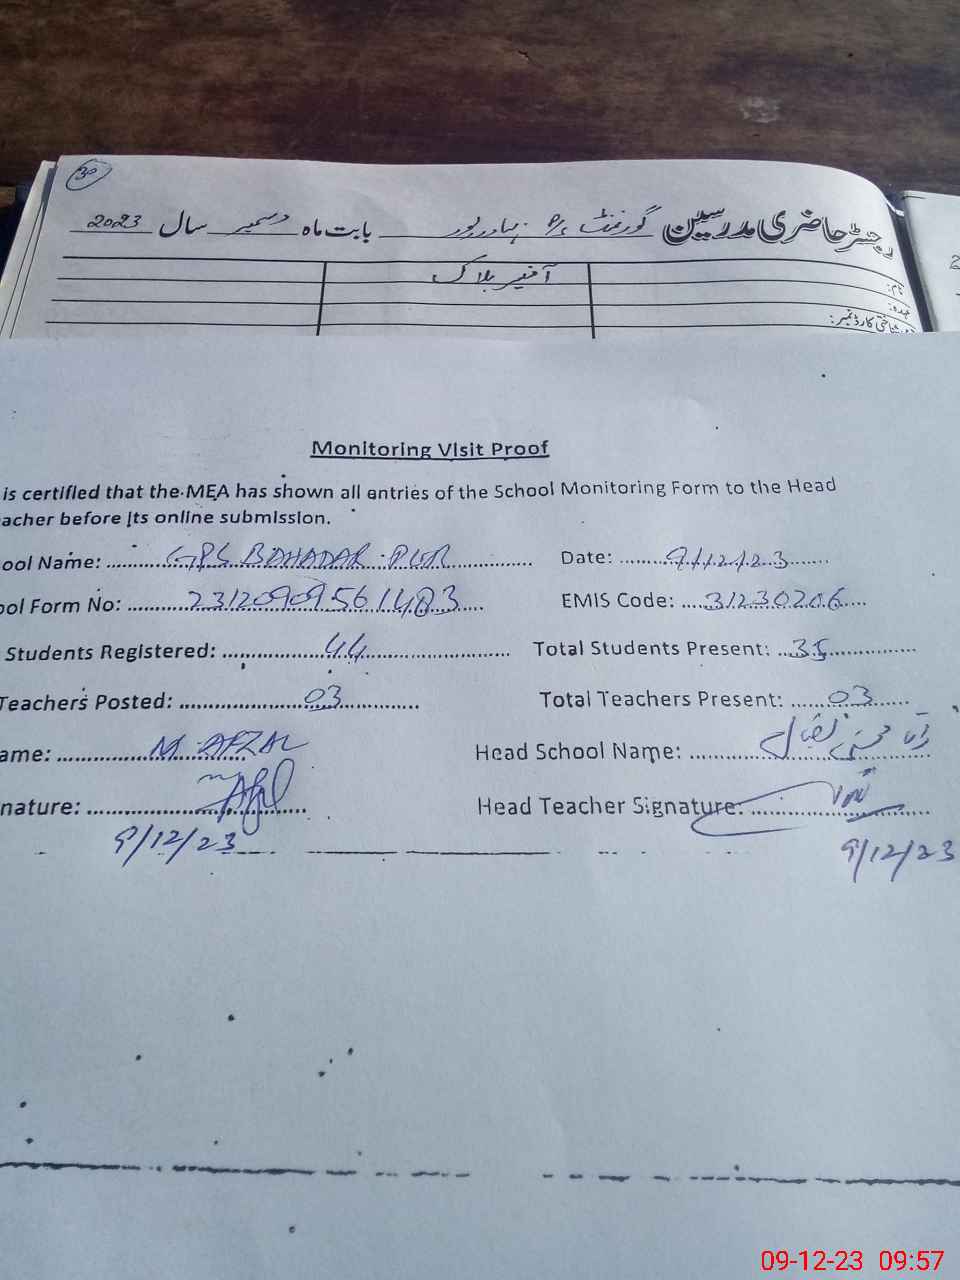 30
رجسٹر حاضری مدرسین گورنمنٹ پ/ا بہادرپور بابت ماہ دسمبر سال 2023
آفیسر بلاک
نام:
عہدہ:
شناختی کارڈ نمبر:
2
Monitoring Visit Proof
is certified that the MEA has shown all entries of the School Monitoring Form to the Head
acher before its online submission.
ool Name: GPS BAHADAR PUR Date: 9/12/23
ool Form No: 23120909561483 EMIS Code: 31230206
Students Registered: 44 Total Students Present: 35
Teachers Posted: 03 Total Teachers Present: 03
ame: M. AFZAL Head School Name:
nature: Head Teacher Signature:
9/12/23 9/12/23
09-12-23 09:57